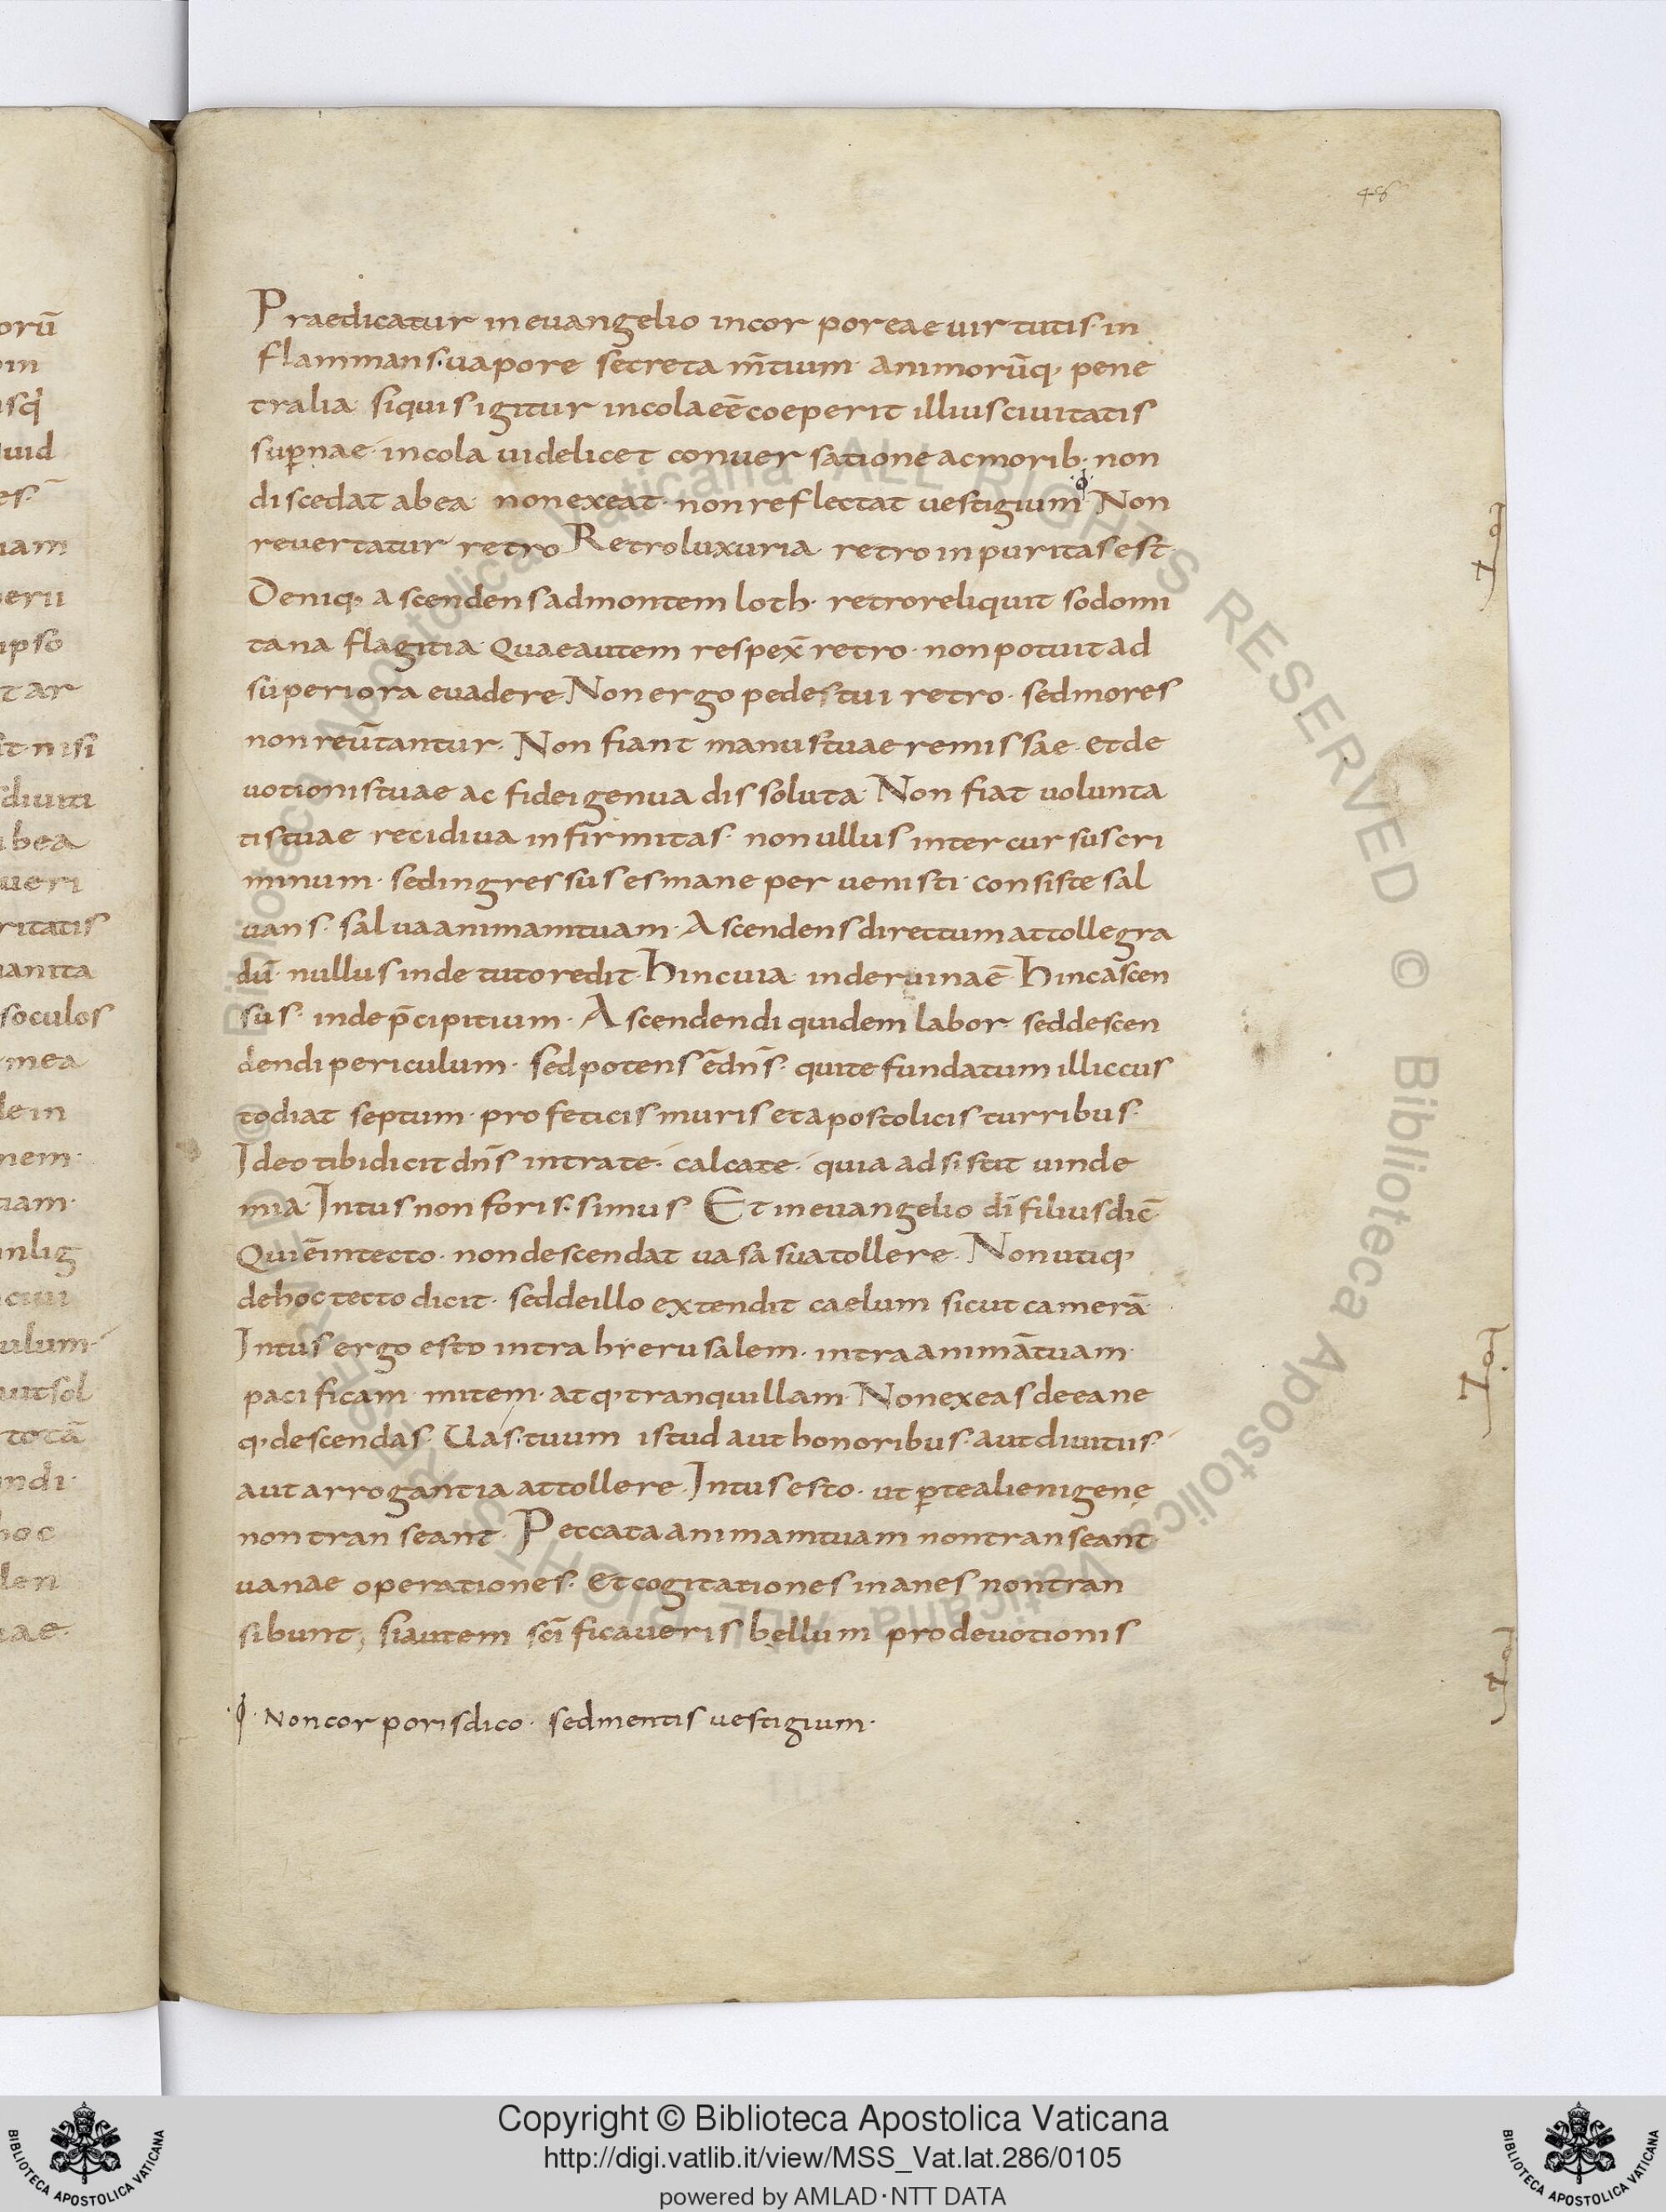 48
orū
in
usq
uid
es
uam
eru
ipso
tar
it nisi
diuiti
bea
ueri
ritatis
uanita
soculos
mea
le in
nem·
tiam·
inlig
ciui
ulum·
uitsol
totā
ndi·
hoc
den
nae·
Praedicatur in euangelio incorporeae uirtutis· in
flammans· uapore secreta m̄tium· animorūq· pene
tralia· siquis igitur incola eē coeperit illius ciuitatis
sup̄nae· incola uidelicet conuersatione ac morib· non
discedat ab ea· non exeat· non reflectat uestigium· Non
reuertatur retro Retro luxuria· retro inpuritas est·
Deniq· ascendens ad montem loth· retro reliquit sodomi
tana flagitia· Quae autem respex̄ retro· non potuit ad
superiora euadere· Non ergo pedes tui retro· sed mores
non reūtantur· Non fiant manus tuae remissae· et de
uotionis tuae ac fidei genua dissoluta· Non fiat uolunta
tis tuae recidiua infirmitas· non ullus intercursus cri
minum· sed ingressus es mane peruenisti· consiste sal
uans· salua animam tuam· Ascendens directum attolle gra
dū· nullus inde tuto redit· Hinc uia· inde ruina ē· Hinc ascen
sus· inde p̄cipitium· Ascendendi quidem labor· sed descen
dendi periculum· sed potens ē dn̄s· qui te fundatum illic cus
todiat septum· profeticis muris et apostolicis turribus·
Ideo tibi dicit dn̄s intrate· calcate· quia adsistit uinde
mia· Intus non foris· simus Et in euangelio dī filius dic̄
Qui ē in tecto· non descendat uasa sua tollere· Non utiq·
de hoc tecto dicit· sed de illo extendit caelum sicut camerā
Intus ergo esto intra hierusalem· intra animā tuam·
pacificam· mitem· atq· tranquillam· Non exeas de ea ne
q· descendas· Uas· tuum istud aut honoribus· aut diuitiis·
aut arrogantia attollere· Intus esto· ut p̄ te alienigenę
non transeant· Peccata animam tuam non transeant
uanae operationes· et cogitationes inanes non tran
sibunt; si autem sc̄ificaueris bellum pro deuotionis
Non corporis dico· sed mentis uestigium·
© Biblioteca Apostolica Vaticana ALL RIGHTS RESERVED © Biblioteca Apostolica Vaticana ALL RIGHTS RESERVED
Copyright © Biblioteca Apostolica Vaticana
http://digi.vatlib.it/view/MSS_Vat.lat.286/0105
powered by AMLAD·NTT DATA
BIBLIOTECA APOSTOLICA VATICANA
BIBLIOTECA APOSTOLICA VATICANA